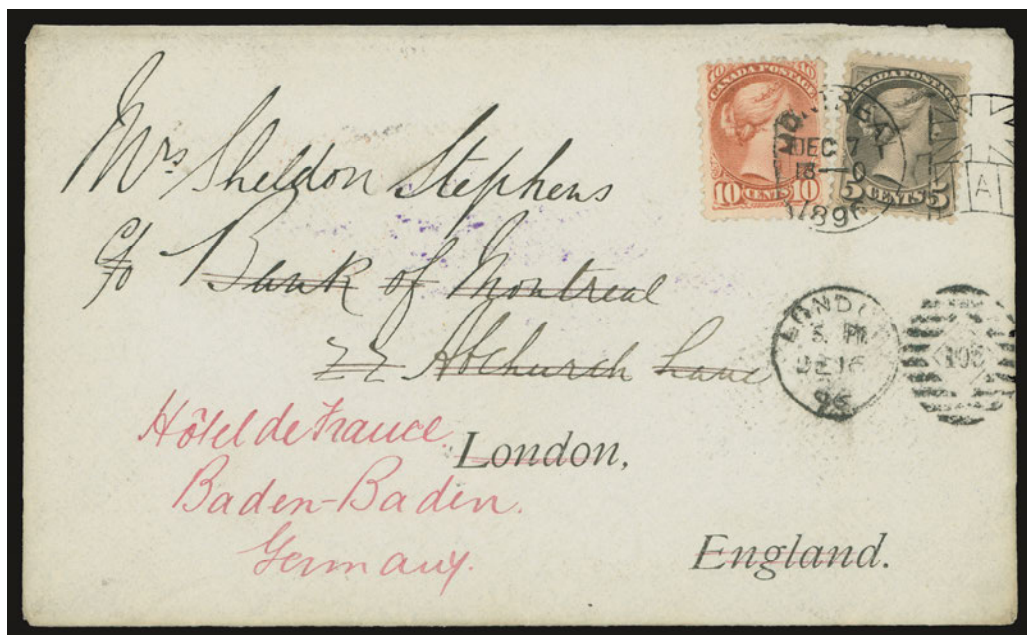 CANADA POSTAGE
10 CENTS 10
CANADA POSTAGE
5 CENTS 5
MONTREAL
DEC 7
18—0
1896
A
Mrs Sheldon Stephens
c/o Bank of Montreal
22 Abchurch Lane
LONDON
DE 16
96
Hôtel de France
London,
Baden-Baden.
Germany.
England.